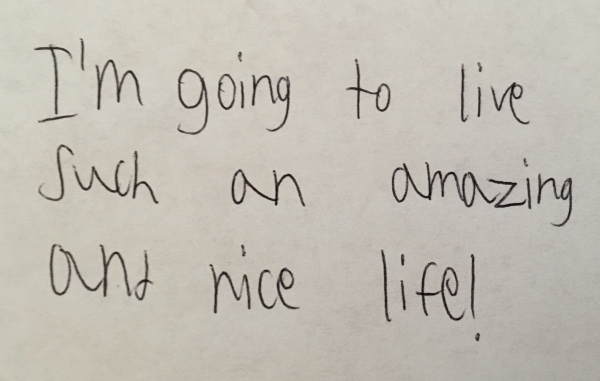 I'm going to live
such an amazing
and nice life!